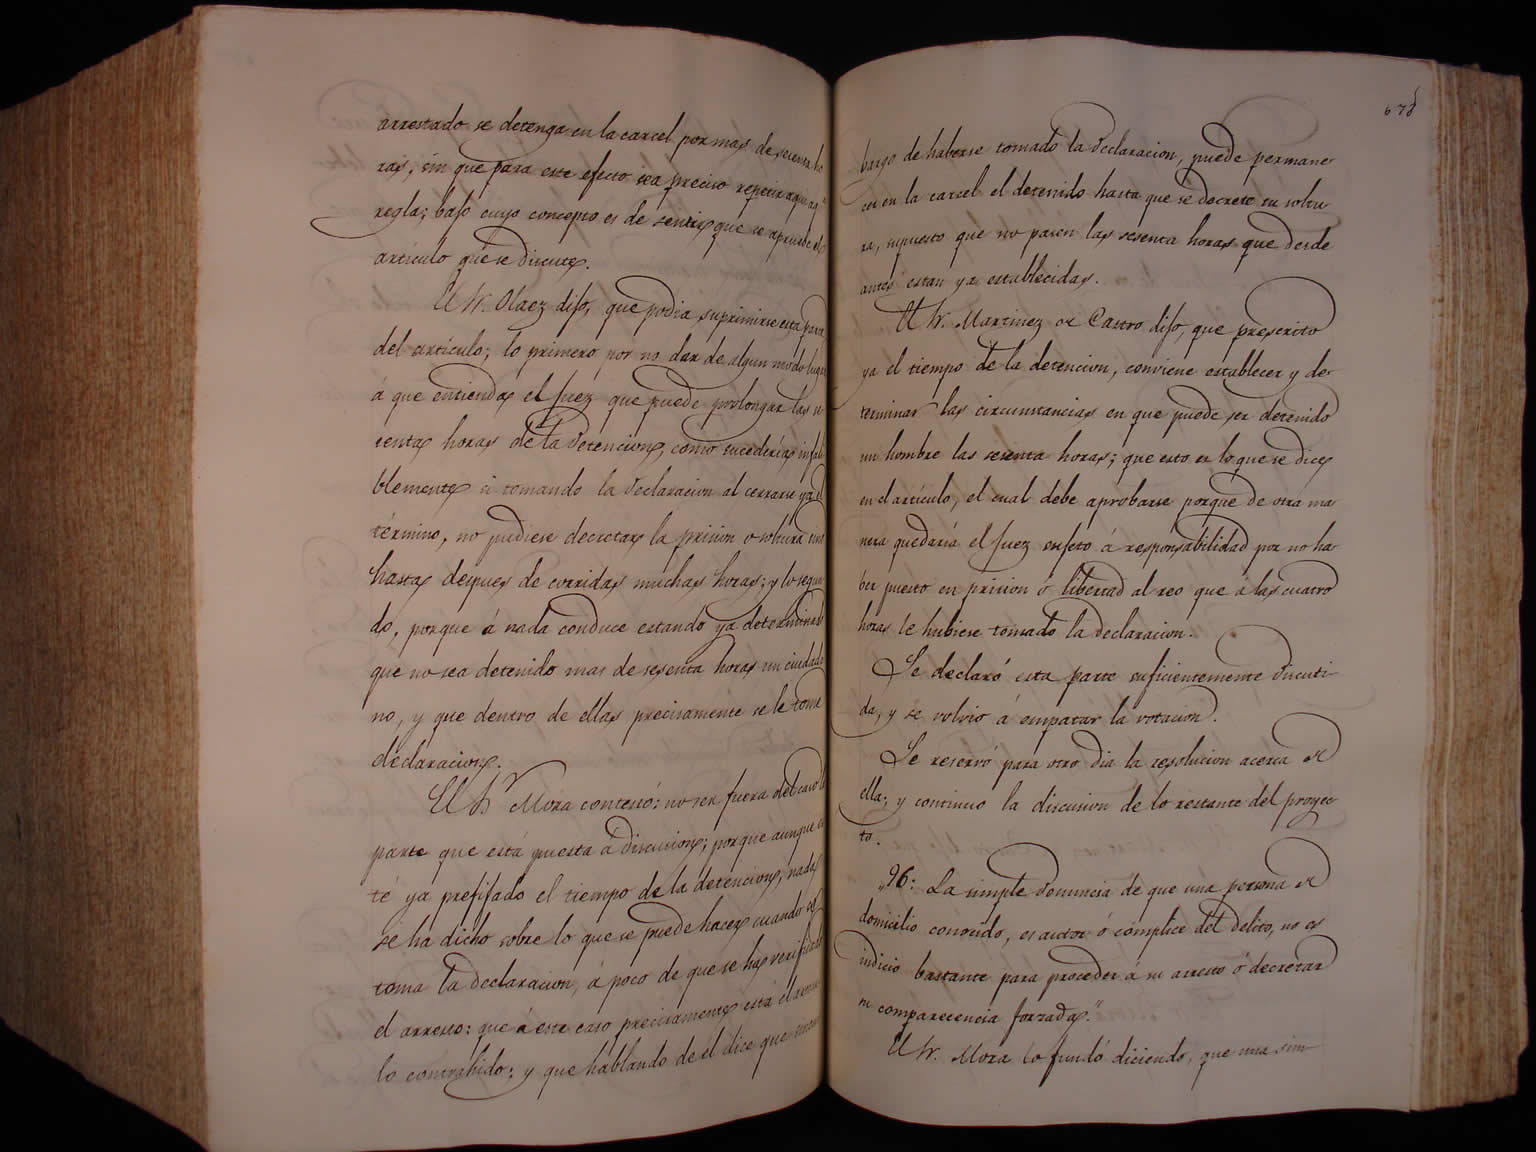 arrestado se detenga en la carcel por mas de sesenta ho
ras, sin que para este efecto sea preciso repetir aqui aq.ª
regla; bajo cuyo concepto es de sentir que se apruebe el
artículo que se discute.
El Sr. Olaez dijo, que podia suprimirse esta parte
del artículo; lo primero por no dar de algun modo lugar
á que entienda el Juez que puede prolongar las se
senta horas de la detencion, como sucedería infali
blemente si tomando la declaracion al cerrarse ya el
término, no pudiese decretar la prision o soltura sino
hasta despues de corridas muchas horas; y lo segun
do, porque á nada conduce estando ya determinado
que no sea detenido mas de sesenta horas un ciudada
no, y que dentro de ellas precisamente se le tome
declaracion.
El Sr Mora contestó: no ser fuera del caso la
parte que está puesta á discusion; porque aunque es
té ya prefijado el tiempo de la detencion, nada
se ha dicho sobre lo que se puede hacer cuando se
toma la declaracion, á poco de que se ha verificado
el arresto: que á este caso precisamente está el artícu
lo contrahido; y que hablando de el dice que sin em
678
bargo de haberse tomado la declaracion, puede permane
cer en la carcel el detenido hasta que se decrete su soltu
ra, supuesto que no pasen las sesenta horas que desde
antes estan ya establecidas.
El Sr. Martinez de Castro dijo, que prescrito
ya el tiempo de la detencion, conviene establecer y de
terminar las circunstancias en que puede ser detenido
un hombre las sesenta horas; que esto es lo que se dice
en el artículo, el cual debe aprobarse porque de otra ma
nera quedaría el Juez sujeto á responsabilidad por no ha
ber puesto en prision ó libertad al reo que á las cuatro
horas le hubiese tomado la declaracion.
Se declaró esta parte suficientemente discuti
da, y se volvio á empatar la votacion.
Se reservó para otro dia la resolucion acerca de
ella; y continuo la discusion de lo restante del proyec
to.
„96: La simple denuncia de que una persona de
domicilio conocido, es autor ó cómplice del delito, no es
indicio bastante para proceder á su arresto ó decretar
su comparecencia forzada."
El Sr. Mora lo fundó diciendo, que una sim